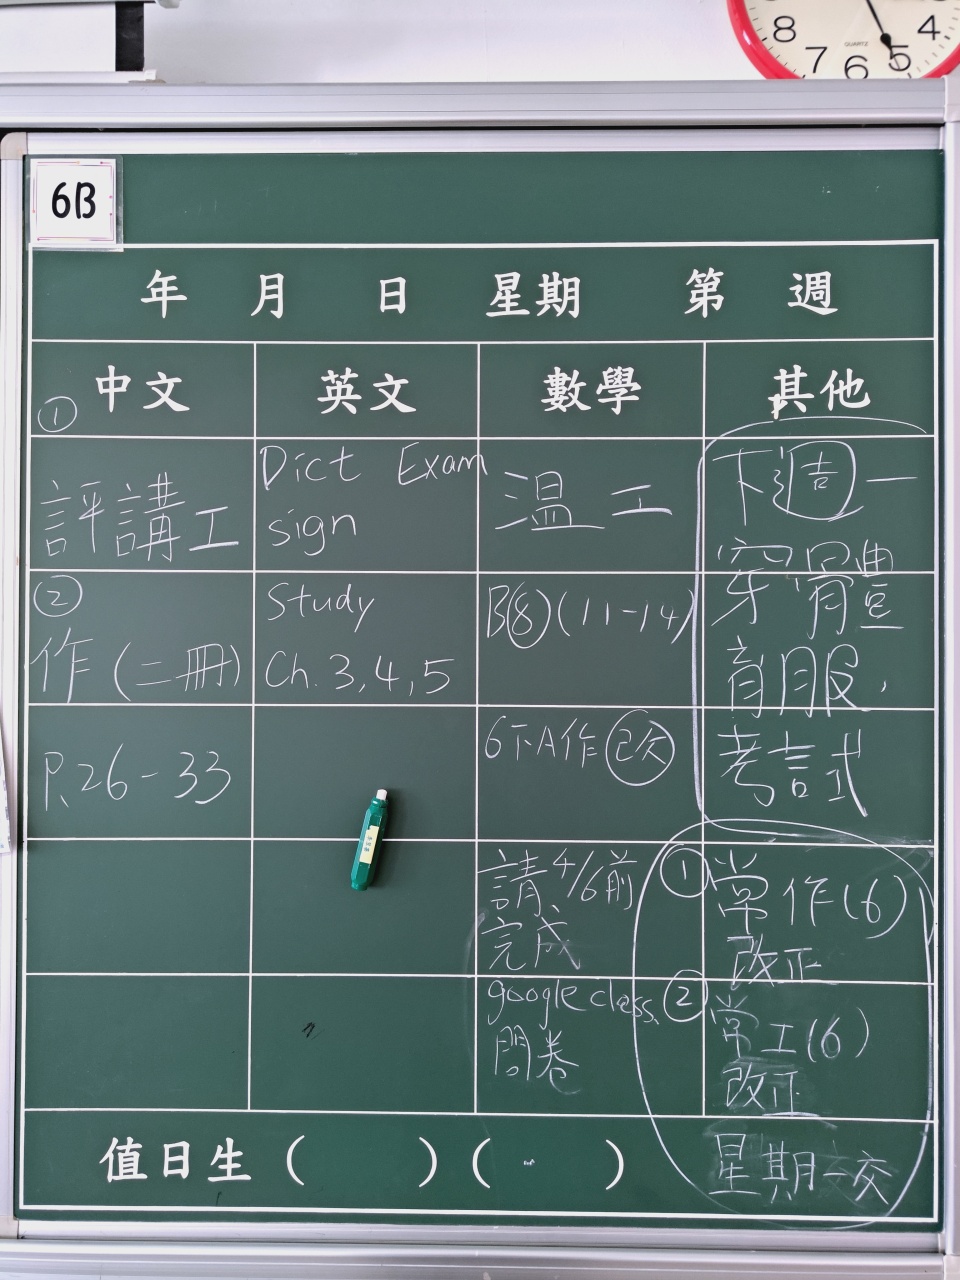 8 7 6 5 4
QUARTZ
6B
年 月 日 星期 第 週
中文 英文 數學 其他
①
評講工
②
作(二冊)
P.26-33
Dict Exam
sign
Study
Ch. 3,4,5
溫工
B⑧(11-14)
6下A作 改
請 4/6前
完成
google class.
問卷
下週一
穿體
育服,
考試
① 常作(6)
改正
② 常工(6)
改正
星期一交
值日生 ( ) ( )